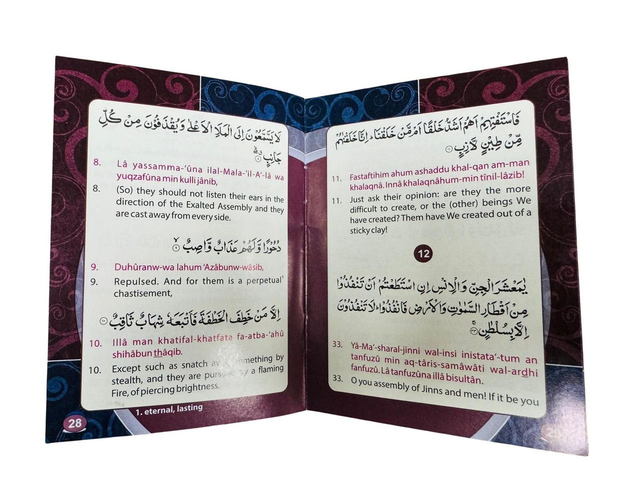 لَا يَسَّمَّعُوْنَ اِلَى الْمَلَاِ الْاَعْلٰى وَيُقْذَفُوْنَ مِنْ كُلِّ
جَانِبٍ
8. Lâ yassamma-'ûna ilal-Mala-'il-A'-lâ wa
yuqzafûna min kulli jânib,
8. (So) they should not listen their ears in the
direction of the Exalted Assembly and they
are cast away from every side.
دُحُوْرًا وَّلَهُمْ عَذَابٌ وَّاصِبٌ
9. Duhûranw-wa lahum 'Azâbunw-wâsib,
9. Repulsed. And for them is a perpetual¹
chastisement,
اِلَّا مَنْ خَطِفَ الْخَطْفَةَ فَاَتْبَعَهٗ شِهَابٌ ثَاقِبٌ
10. Illâ man khatifal-khatfata fa-atba-'ahû
shihâbun thâqib.
10. Except such as snatch away something by
stealth, and they are pursued by a flaming
Fire, of piercing brightness.
1. eternal, lasting
28
فَاسْتَفْتِهِمْ اَهُمْ اَشَدُّ خَلْقًا اَمْ مَّنْ خَلَقْنَا ؕ اِنَّا خَلَقْنٰهُمْ
مِّنْ طِيْنٍ لَّازِبٍ
11. Fastaftihim ahum ashaddu khal-qan am-man
khalaqnâ. Innâ khalaqnâhum-min tînil-lâzib!
11. Just ask their opinion: are they the more
difficult to create, or the (other) beings We
have created? Them have We created out of a
sticky clay!
12
يٰمَعْشَرَ الْجِنِّ وَالْاِنْسِ اِنِ اسْتَطَعْتُمْ اَنْ تَنْفُذُوْا
مِنْ اَقْطَارِ السَّمٰوٰتِ وَالْاَرْضِ فَانْفُذُوْا ؕ لَا تَنْفُذُوْنَ
اِلَّا بِسُلْطٰنٍ
33. Yâ-Ma'-sharal-jinni wal-insi inistata'-tum an
tanfuzû min aq-târis-samâwâti wal-ardhi
fanfuzû. Lâ tanfuzûna illâ bisultân.
33. O you assembly of Jinns and men! If it be you